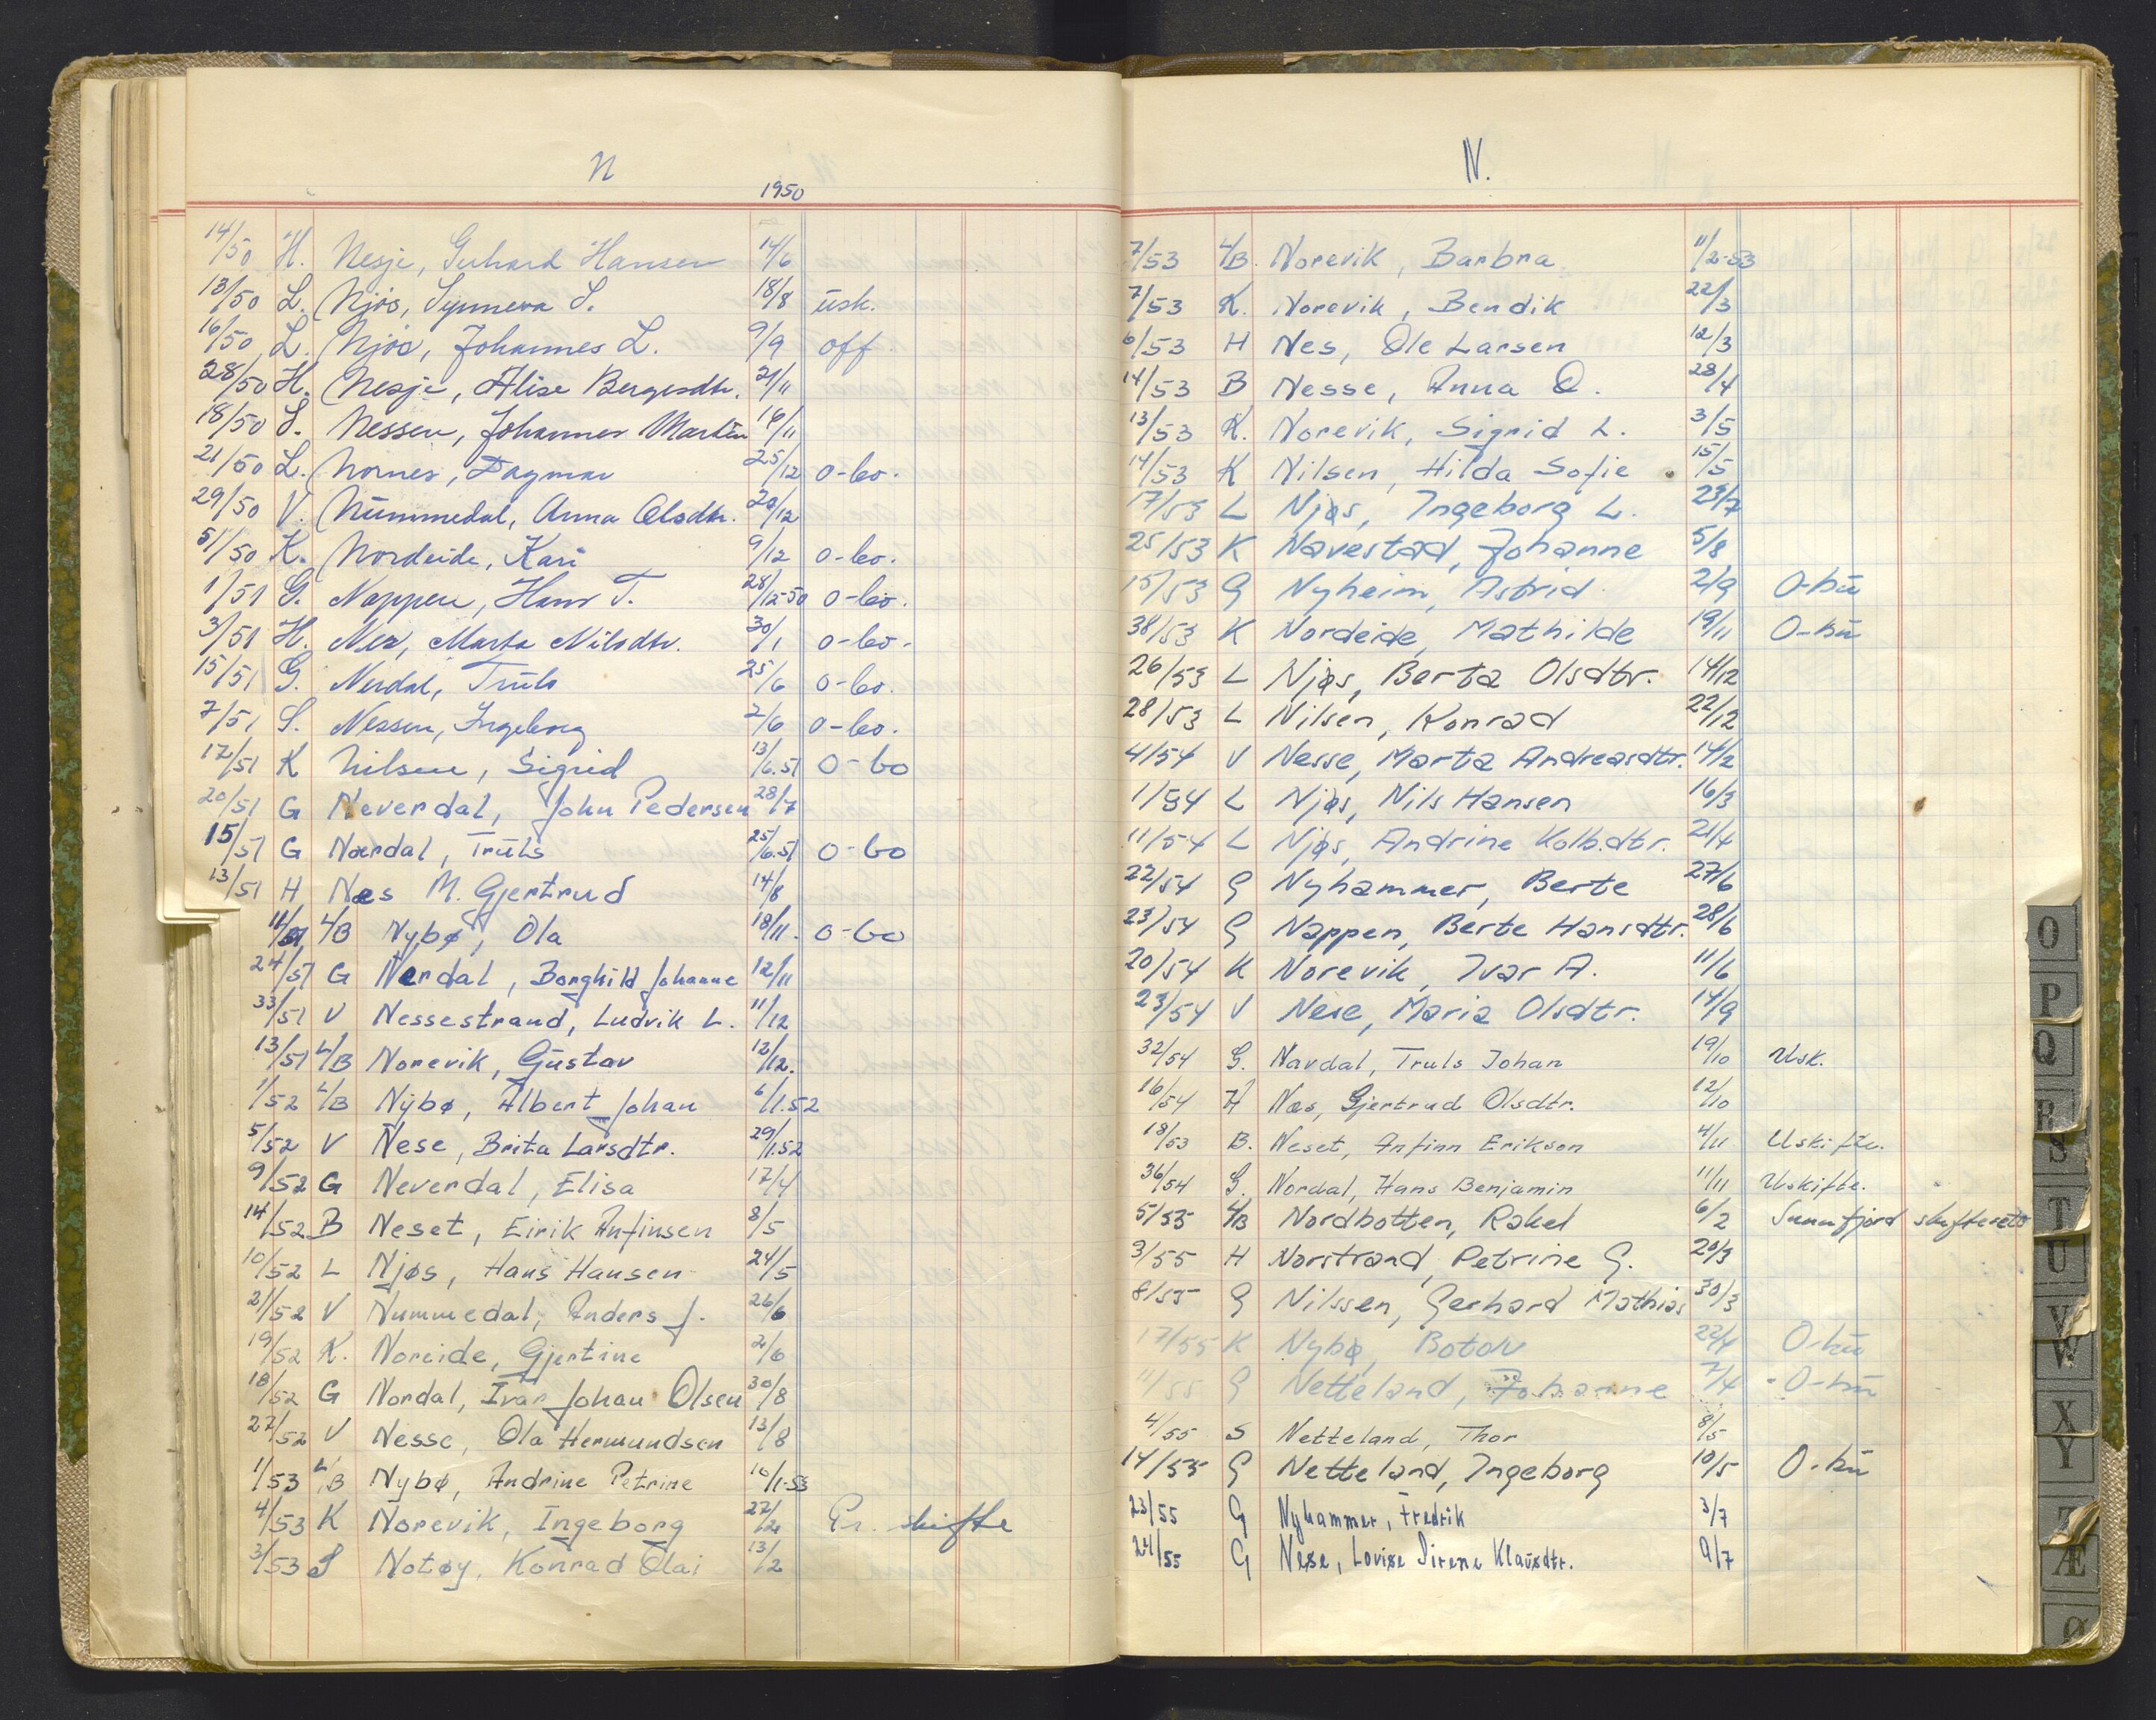 N
1950
14/50 H. Nesje, Gerhard Hansen 14/6
13/50 L. Njøs, Synneva S. 18/8 usk.
16/50 L. Njøs, Johannes L. 9/9 off.
28/50 H. Nesje, Alise Bergesdtr. 21/11
18/50 S. Nessen, Johannes Martin 16/11
21/50 L. Nornes, Dagmar 25/12 o-bo.
29/50 V. Nummedal, Anna Olsdtr. 20/12
51/50 K. Nordeide, Kari 9/12 o-bo.
1/51 G. Nappen, Hans T. 28/12-50 o-bo.
3/51 H. Nes, Marta Nilsdtr. 30/1 o-bo.
15/51 G. Nerdal, Truls 25/6 o-bo.
7/51 S. Nessen, Ingeborg 2/6 o-bo.
17/51 K Nilsen, Sigrid 13/6.51 o-bo
20/51 G Neverdal, John Pedersen 28/7
15/51 G Nærdal, Truls 25/6.51 o-bo
13/51 H Næs M. Gjertrud 14/8
11/51 L/B Nybø, Ola 18/11. o-bo
24/51 G Nerdal, Borghild Johanne 12/11
33/51 V Nessestrand, Ludvik L. 11/12
13/51 L/B Norevik, Gustav 12/12.
1/52 L/B Nybø, Albert Johan 6/1.52
5/52 V Nese, Brita Larsdtr. 29/1.52
9/52 G Neverdal, Elisa 17/4
14/52 B Neset, Eirik Anfinsen 8/5
10/52 L Njøs, Hans Hansen 24/5
21/52 V Nummedal, Anders J. 26/6
19/52 K. Noreide, Gjertine 2/6
18/52 G Nordal, Ivar Johan Olsen 30/8
27/52 V Nesse, Ola Hermundsen 13/8
1/53 L/B Nybø, Andrine Petrine 10/1-53
4/53 K Norevik, Ingeborg 27/2 Pr. skifte
3/53 S Notøy, Konrad Olai 13/2
N.
7/53 L/B. Norevik, Barbra 11/2-53
7/53 K. Norevik, Bendik 22/3
6/53 H Nes, Ole Larsen 12/3
14/53 B Nesse, Anna O. 28/4
13/53 K. Norevik, Sigrid L. 3/5
14/53 K Nilsen, Hilda Sofie 15/5
17/53 L Njøs, Ingeborg L. 23/7
25/53 K Navestad, Johanne 5/8
15/53 G Nyheim, Astrid 2/9 O-bu
38/53 K Nordeide, Mathilde 19/11 O-bu
26/53 L Njøs, Berta Olsdtr. 14/12
28/53 L Nilsen, Konrad 22/12
4/54 V Nesse, Marta Andreasdtr. 14/2
1/54 L Njøs, Nils Hansen 16/3
11/54 L Njøs, Andrine Kolb.dtr. 21/4
22/54 G Nyhammer, Berte 27/6
23/54 G Nappen, Berte Hansdtr. 28/6
20/54 K Norevik, Ivar A. 11/6
23/54 V Nese, Maria Olsdtr. 14/9
32/54 G. Navdal, Truls Johan 19/10 Usk.
16/54 H Næs, Gjertrud Olsdtr. 12/10
18/53 B. Neset, Anfinn Erikson 4/11 Uskifte.
36/54 G. Nordal, Hans Benjamin 11/11 Uskifte.
5/55 L/B Nordbotten, Rakel 6/2 Sunnfjord skifterett
3/55 H Norstrand, Petrine G. 20/3
8/55 G Nilssen, Gerhard Mathias 30/3
17/55 K Nybø, Botolv 22/4 O-bu
11/55 G Netteland, Johanne 7/4 O-bu
4/55 S Netteland, Thor 8/5
14/55 G Netteland, Ingeborg 10/5 O-bu
23/55 G Nyhammer, Fredrik 3/7
24/55 G Nese, Lovise Sirene Klausdtr. 9/7
O
P
Q
R
S
T
U
V
W
X
Y
Z
Æ
Ø